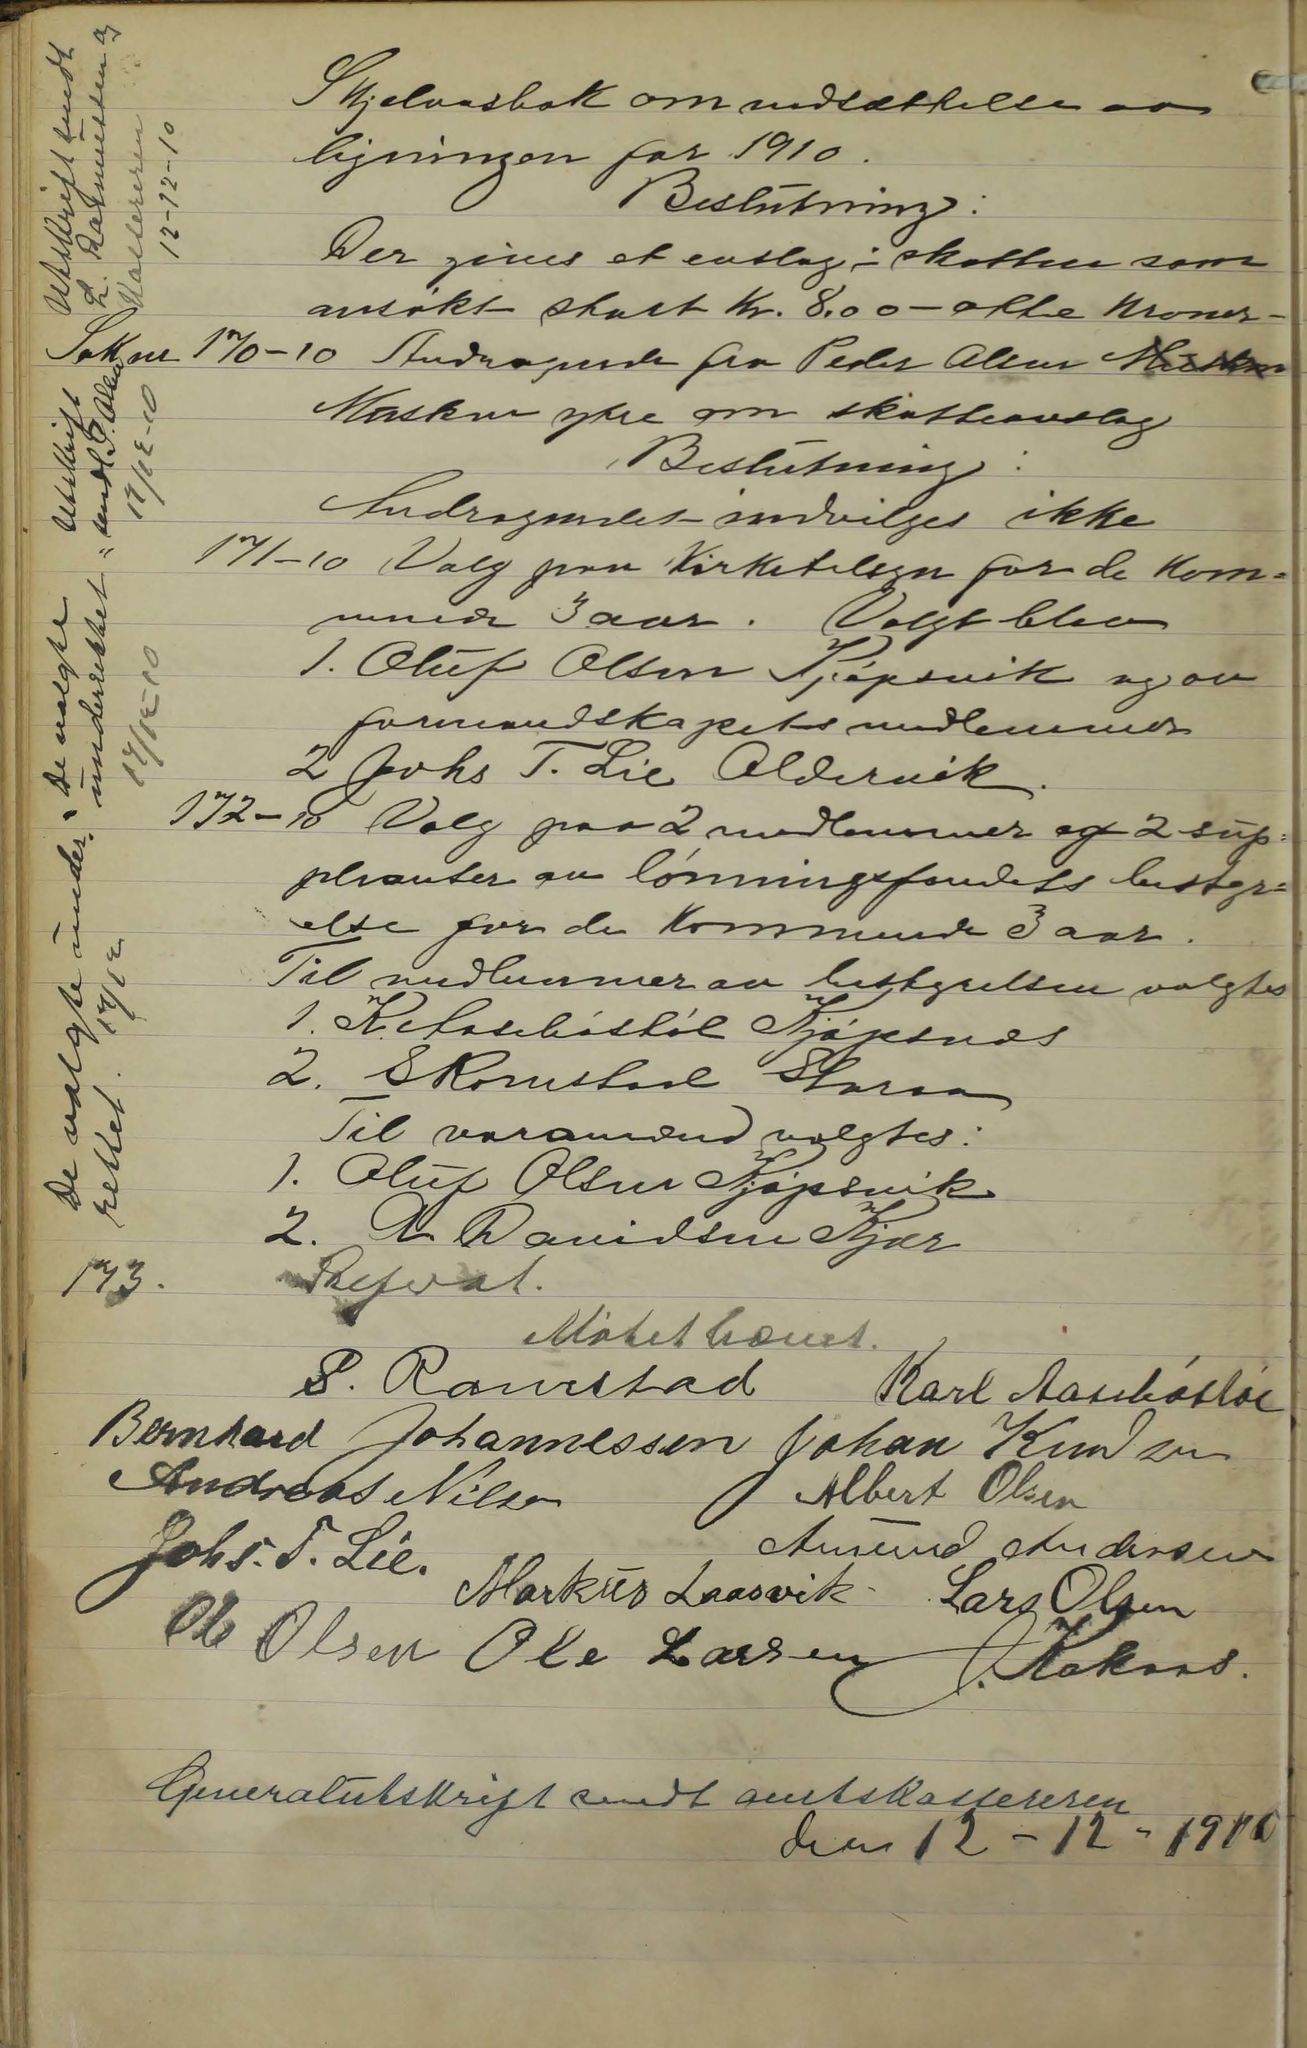 Skjelvasbak om nedsættelse av
ligningen for 1910.
Beslutning:
Der gives et avslag i skatten som
ansøkt stort Kr. 8.00 - otte Kroner -
Sak nr 170-10 Andragende fra Peder Olsen
Maskn ytre om skatteavslag
Beslutning:
Andragendet indvilges ikke
171-10 Valg paa Kirketilsyn for de kom-
mende 3 aar. Valgt blev
1. Oluf Olsen Kjøpsvik og av
formandskapets medlemmer
2 Johs T. Lie Aldervik.
172-10 Valg paa 2 medlemmer og 2 sup-
pleanter av lønningsfondets bestyr-
else for de kommende 3 aar.
Til medlemmer av bestyrelsen valgtes
1. K. Aasebøstøl Kjøpsnes
2. S Romstad Storaa
Til varamænd valgtes:
1. Oluf Olsen Kjøpsvik
2. Davidsen Kjær
173. Referat.
Møtet hævet.
Karl Aasebøstøl
Bernhard Johannessen Johan Knudsen
Andreas Nilsen Albert Olsen
Johs. T. Lie. Amund Andersen
Markus Laasvik Lars Olsen
Ole Olsen Ole Larsen
Generalutskrift sendt amtskassereren
den 12-12-1910
Utskrift sendt
L. Rasmussen og
Kassereren
12-12-10
Utskrift
sendt P. Olsen
12/12-10
De valgte
underrettet
12/12-10
De valgte under-
rettet. 12/12